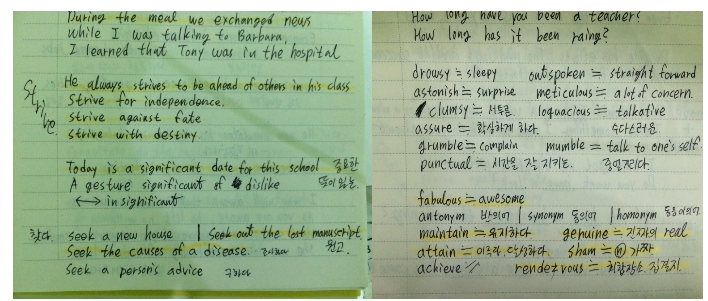 During the meal we exchanged news
While I was talking to Barbara,
I learned that Tony was in the hospital
Strive
He always strives to be ahead of others in his class
Strive for independence.
strive against fate
strive with destiny.
Today is a significant date for this school 중요한
A gesture significant of dislike 뜻이 있는
↔ insignificant
찾다. Seek a new house | Seek out the lost manuscript.
원고.
Seek the causes of a disease.
Seek a person's advice 구하다
How long have you beed a teacher?
How long has it been raing?
drowsy ≒ sleepy outspoken ≒ straight forward
astonish ≒ surprise meticulous ≒ a lot of concern.
clumsy ≒ 서투른 loquacious ≒ talkative
assure ≒ 확실하게 하다. 수다스러운
grumble ≒ complain mumble ≒ talk to one's self.
punctual ≒ 시간을 잘 지키는. 중얼거리다.
fabulous ≒ awesome
antonym 반의어 | synonym 동의어 | homonym 동음이의어
maintain ≒ 유지하다 genuine ≒ 진짜의 real
attain ≒ 이루다, 달성하다. sham ≒ ⓝ 가짜
achieve 〃 rendezvous ≒ 집결지.